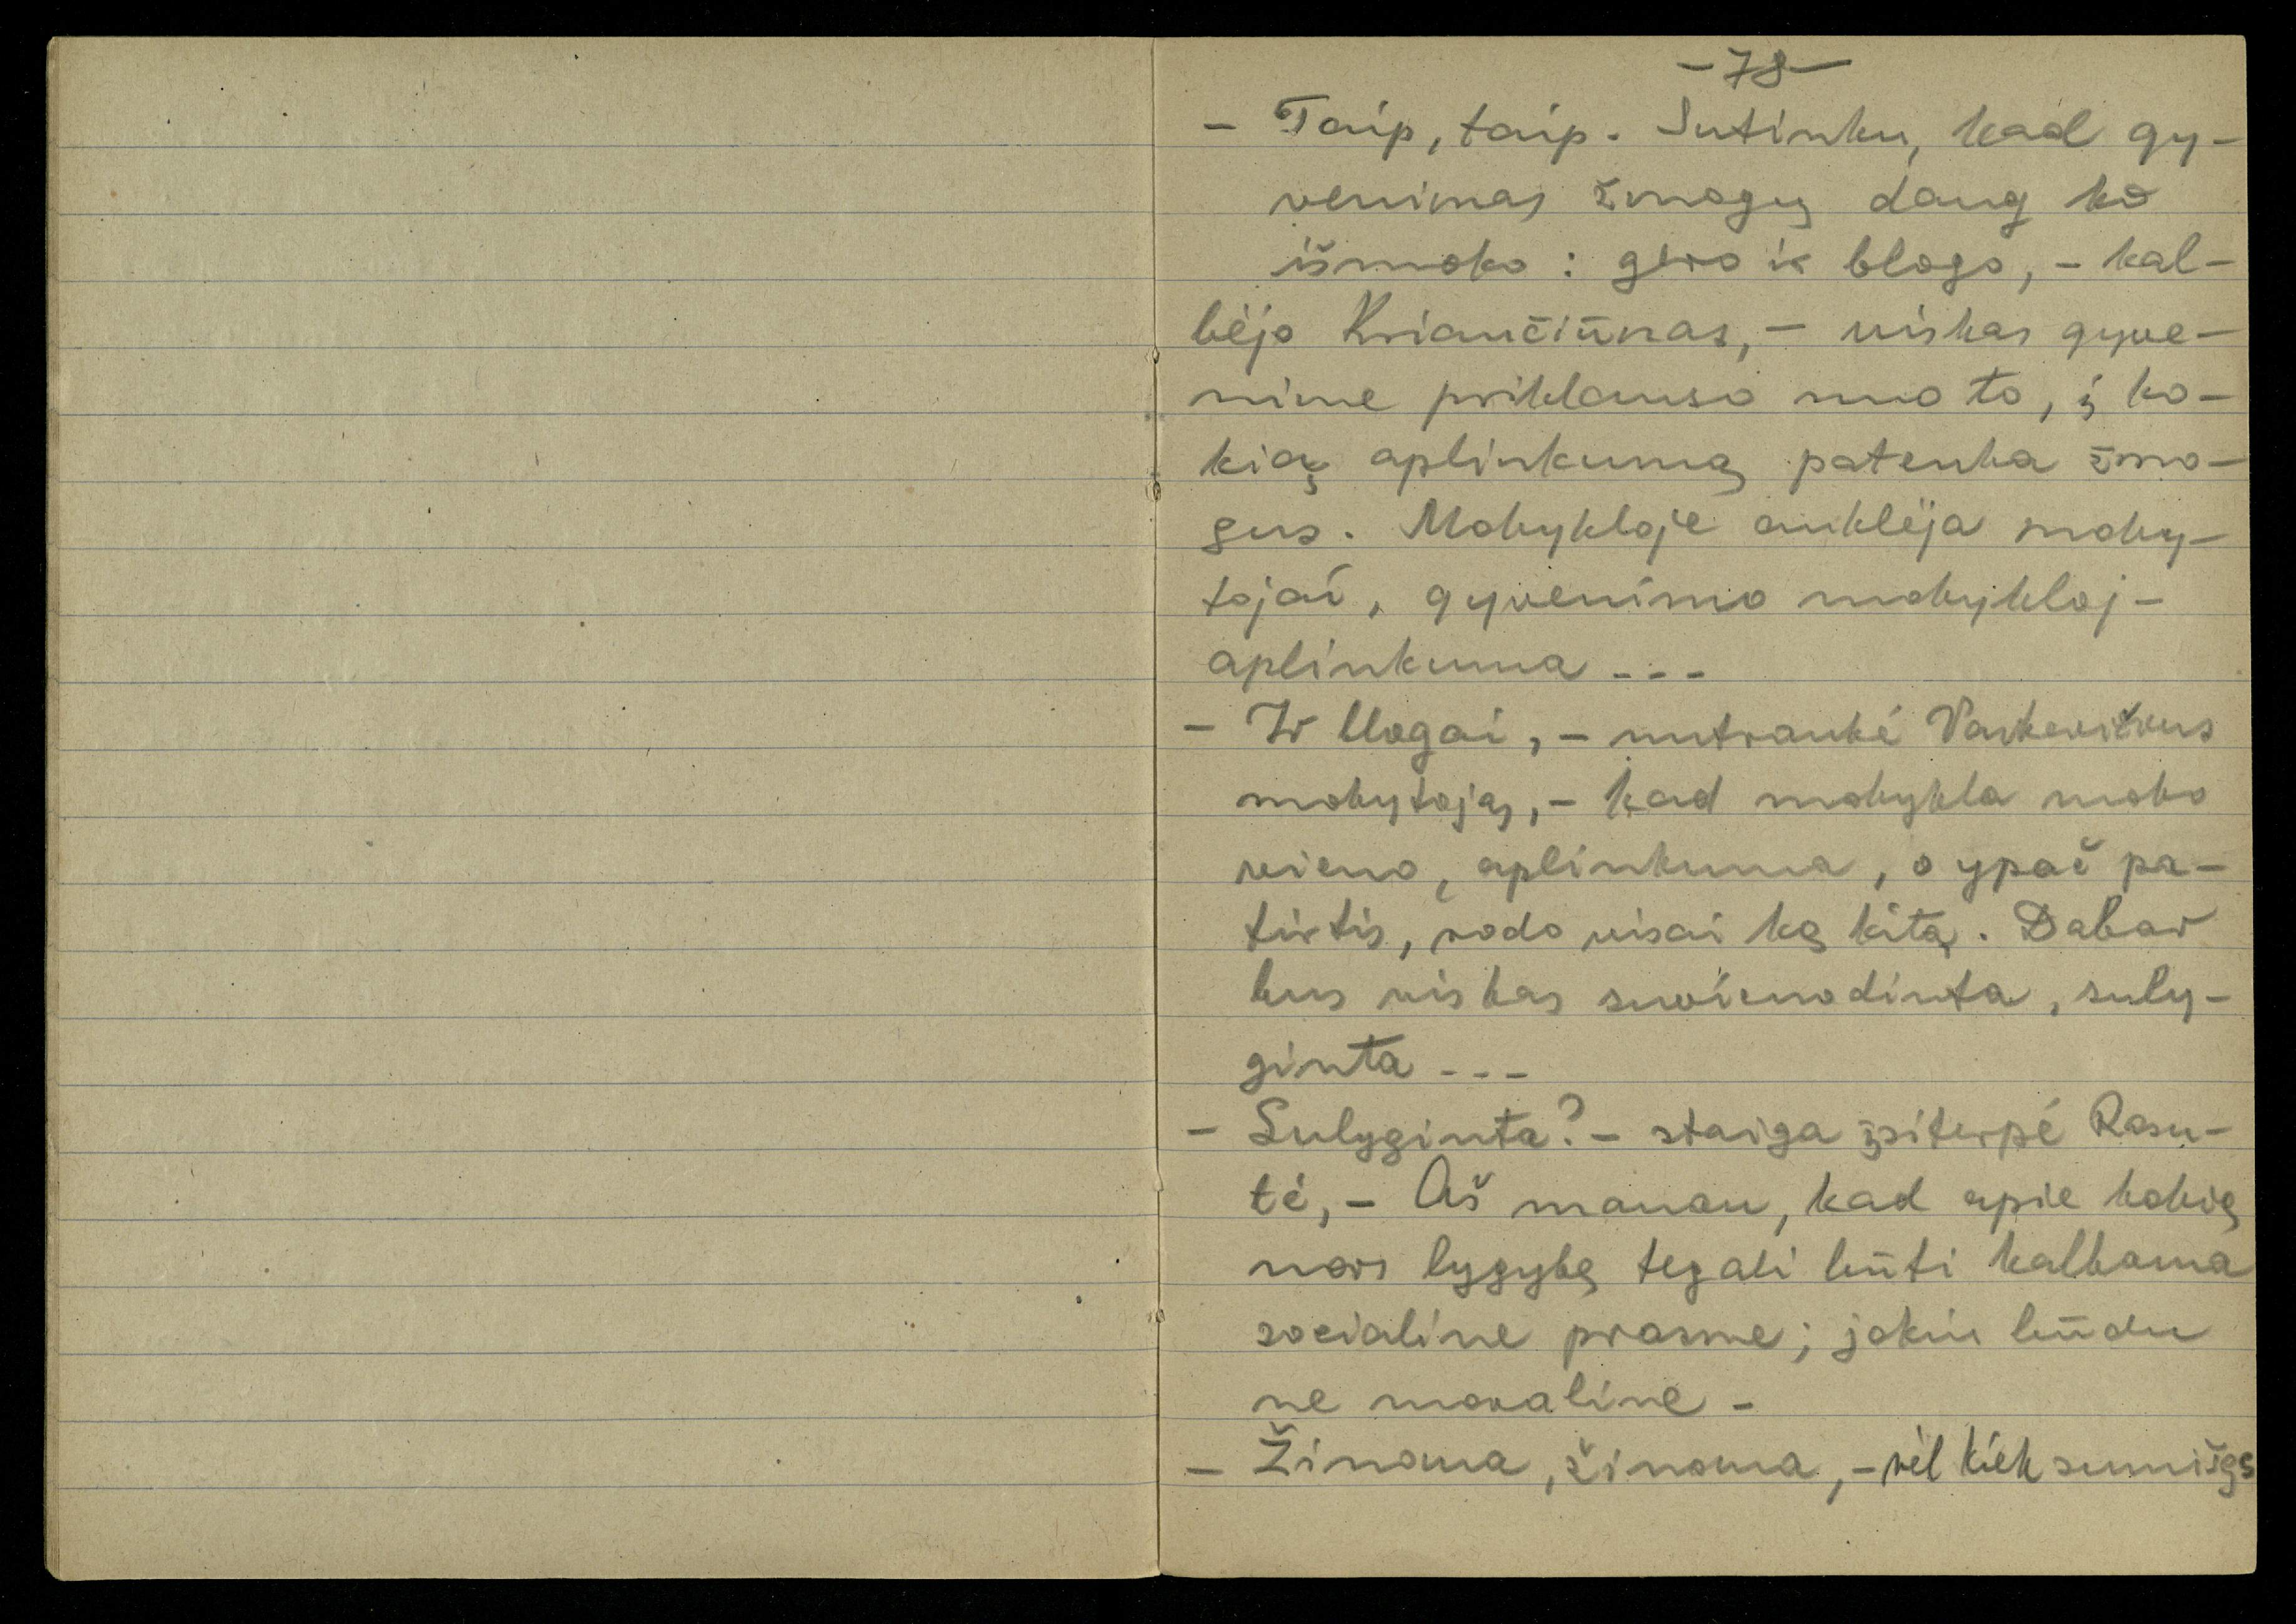 -78-
- Taip, taip. Sutinku, kad gy-
venimas žmogų daug ko
išmoko: gero ir blogo, - kal-
bėjo Kriaučiūnas, - viskas gyve-
nime priklauso nuo to, į ko-
kią aplinkumą patenka žmo-
gus. Mokykloje auklėja moky-
tojai, gyvenimo mokykloj -
aplinkuma ...
- Ir blogai, - nutraukė Vaikevičius
mokytoją, - kad mokykla moko
vieno, aplinkuma, o ypač pa-
tirtis, rodo visai ką kitą. Dabar
bus viskas suvienodinta, suly-
ginta ...
- Sulyginta? - staiga įsiterpė Rasu-
tė, - Aš manau, kad apie kokią
nors lygybę tegali būti kalbama
socialine prasme; jokiu būdu
ne moraline.
- Žinoma, žinoma, - vėl kiek sumišęs